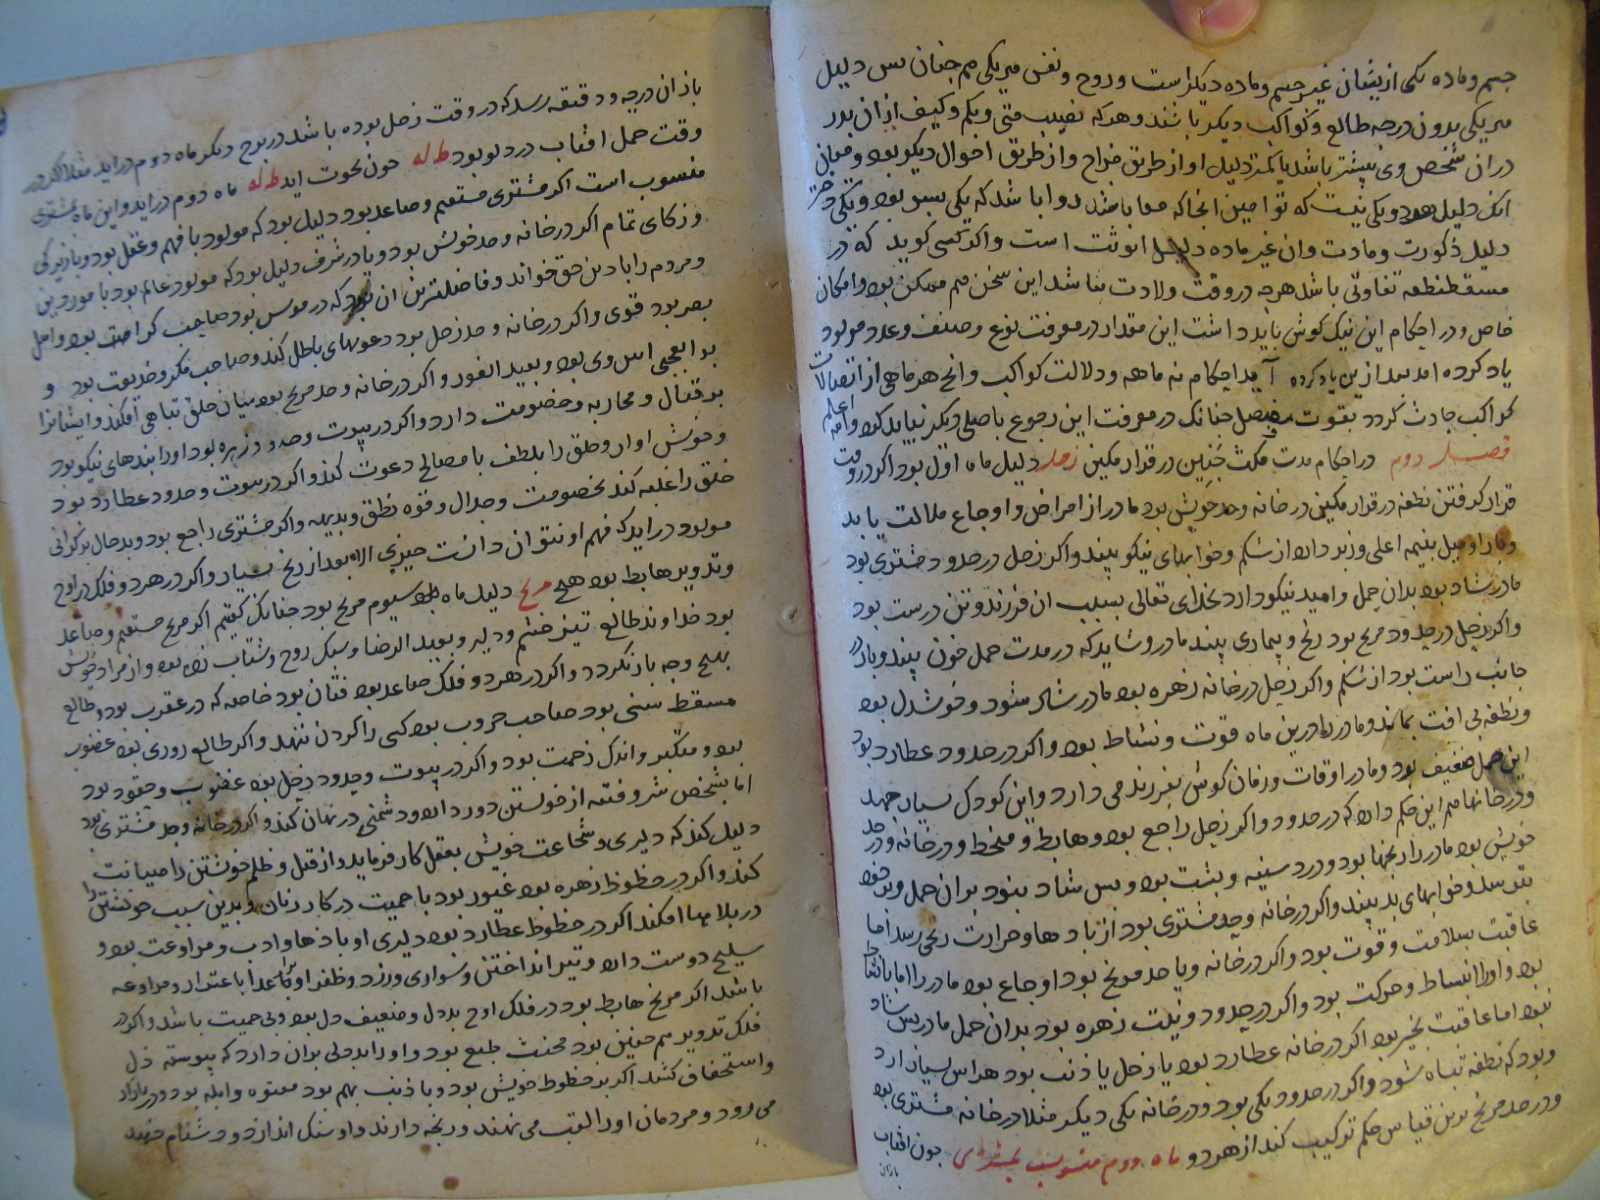 جسم و ماده یکی ازیشان غیر جسم و ماده دیکر است و روح و نفس هر یکی هم چنان بس دلیل
هر یکی بدون درجه طالع و کواکب دیکر باشند و هر که نصیب متی و بکم و کیف ازان بدر
دران شخص وی بیشتر باشد یا کمتر دلیل او از طریق مزاج و از طریق احوال دیکر بود و میان
انک دلیل هر دو یکی نیست که توامین انجا که معا باشد روا باشد که یکی بسر بود و یکی دختر
دلیل ذکورت و مادت و ان غیر ماده دلیل انوثت است و اکر کسی کوید که در
مسقط نطفه تفاوتی باشد هرچه در وقت ولادت نباشد این سخن هم ممکن بود و امکان
خاص و در احکام این نیک کوش باید داشت این مقدار در معرفت نوع و صنف و عدد مولود
یاد کرده امد بعد ازین یاد کرده آید احکام نه ماهه و دلالت کواکب و انج هر ماهی از اتصالات
کواکب حادث کردد بقوت مفصل چنانک در معرفت این رجوع باصلی دیکر نیاید کرد والله اعلم
فصل دوم در احکام مدت مکث جنین در قرار مکین زحل دلیل ماه اول بود اکر در وقت
قرار کرفتن نطفه در قرار مکین در خانه و حد خویش بود مادر از امراض و اوجاع ملالت یابد
و بار او میل بنیمه اعلی و زبر دارد از شکم و خوابهای نیکو بیند و اکر زحل در حدود مشتری بود
مادر شاد بود بدان حمل و امید نیکو دارد بخدای تعالی بسبب ان فرزند و تن درست بود
و اکر زحل در حدود مریخ بود رنج و بیماری بیند مادر و شاید که در مدت حمل خون بیند و بار در
جانب راست بود از شکم و اکر زحل در خانه زهره بود مادر شاد شود و خوشدل بود
و نطفه بی افت بماند و مادر را درین ماه قوت و نشاط بود و اکر در حدود عطارد بود
این حمل ضعیف بود و مادر اوقات و زمان کوش بفرزند می دارد و این کودک بسیار جهد
و در خانها هم این حکم دارد که در حدود و اکر زحل راجع بود و هابط و منحط و در خانه و در حد
خویش بود مادر را رنجها بود و درد سینه و بشت بود و بس شاد نبود بدان حمل و بر خود
بترسد و خوابهای بد بیند و اکر در خانه و حد مشتری بود از بادها و حرارت رنجی رسد اما
عاقبت بسلامت و قوت بود و اکر در خانه و یا حد مریخ بود اوجاع بود مادر را اما با نشاط
بود و او را انبساط و حرکت بود و اکر در حدود و بیت زهره بود بدان حمل مادر بس شاد
نبود اما عاقبت بخیر بود اکر در خانه عطارد بود یا زحل یا ذنب بود هراس بسیار دارد
و بود که نطفه تباه شود و اکر در حدود یکی بود و در خانه یکی دیکر مثلا در خانه مشتری بود
و در حد مریخ برین قیاس حکم ترکیب کند از هر دو ماه دوم منسوب بمشتری چون افتاب
بازان
بازان درجه و دقیقه رسد که در وقت زحل بوده باشد در برج دیکر ماه دوم در اید مثلا اکر در
وقت حمل افتاب در دلو بود ط له چون بحوت اید ط له ماه دوم در اید و این ماه بمشتری
منسوب است اکر مشتری مستقیم و صاعد بود دلیل بود که مولود با فهم و عقل بود و با زیرکی
و ذکای تمام اکر در خانه و حد خویش بود و یا در شرف دلیل بود که مولود عالم بود با مور دین
و مردم را با دین حق خواند و فاضلترین ان بود که در قوس بود صاحب کرامت بود و اصل
بصر بود قوی و اکر در خانه و حد زحل بود دعویهای باطل کند و صاحب مکر و خدیعت بود و
بو العجبی اس وی بود و بعید الغور و اکر در خانه و حد مریخ بود میان خلق تباهی افکند و ایشانرا
بر قتال و محاربه و خصومت دارد و اکر در بیوت و حدود زهره بود او را بندهای نیکو بود
و خوش اواز و خلق را بلطف با مصالح دعوت کند و اکر در بیوت و حدود عطارد بود
خلق را غلبه کند بخصومت و جدال و قوه نطق و بدیهه و اکر مشتری راجع بود و بد حال بر کرانی
مولود در اید که فهم او نتوان دانست چیزی الا بعد از رنج بسیار و اکر در هر دو فلک در اوج
و تدویر هابط بود هیچ مریخ دلیل ماه سیوم مریخ بود چنانک کفتیم اکر مریخ مستقیم و صاعد
بود خداوند طالع تیز خشم و دلیر و بعید الرضا و سبک روح و شتاب زده بود و از مراد خویش
بهیچ وجه باز نکردد و اکر در هر دو فلک صاعد بود فتان بود خاصه که در عقرب بود و طالع
مسقط سنی بود صاحب حروب بود کسی را کردن ننهد و اکر طالع روزی بود غضوب
بود و متکبر و اندک زحمت بود و اکر در بیوت و حدود زحل بود غضوب و حقود بود
اما بشخص شر و فتنه از خویشتن دور دارد و دشمنی در نهان کند و اکر در خانه و حد مشتری بود
دلیل کند که دلیری و شجاعت خویش بعقل کار فرماید و از قتل و ظلم خویشتن را صیانت
کند و اکر در حظوظ زهره بود غیور بود با حمیت در کار زنان و بدین سبب خویشتن را
در بلاها افکند اکر در حظوظ عطارد بود دلیری او با دها و ادب و مراوغت بود و
سلیح دوست دارد و تیر انداختن و سواری ورزد و ظفر او بر اعدا با عتذار و مراوغه
باشد اکر مریخ هابط بود در فلک اوج بددل و ضعیف دل بود و بی حمیت باشد و اکر در
فلک تدویر هم چنین بود مخنث طبع بود و او را بددلی بران دارد که پیوسته ذل
و استخفاف کشد اکر بر حظوظ خویش بود و با ذنب بهم بود معتوه و ابله بود و در بازار
می رود و مردمان او را لقب می نهند و رنجه دارند و او سنک اندازد و دشنام می دهد